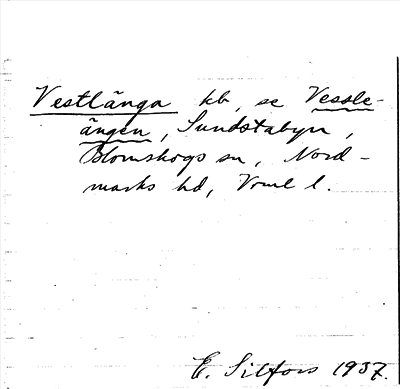 Vestlänga kb, se Vessle-
ängen, Sundstabyn,
Blomskogs sn, Nord-
marks hd, Vrml l.
E. Silfors 1937.